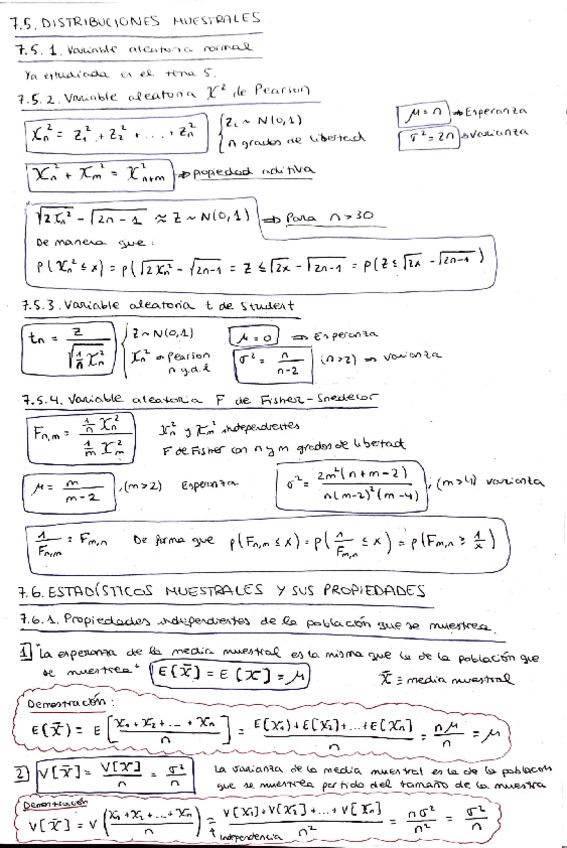 7.5. DISTRIBUCIONES MUESTRALES
7.5.1. Variable aleatoria normal
Ya estudiada en el tema 5.
7.5.2. Variable aleatoria χ² de Pearson
χₙ² = Z₁² + Z₂² + ... + Zₙ² { Zᵢ ~ N(0,1) n grados de libertad μ = n ⇒ Esperanza σ² = 2n ⇒ Varianza
χₙ² + χₘ² = χ²ₙ₊ₘ ⇒ propiedad aditiva
√(2χₙ²) - √(2n-1) ≈ Z ~ N(0,1) ⇒ Para n>30
De manera que:
P(χₙ² ≤ x) = P(√(2χₙ²) - √(2n-1) = Z ≤ √(2x) - √(2n-1) = P(Z ≤ √(2x) - √(2n-1))
7.5.3. Variable aleatoria t de Student
tₙ = Z / √(1/n χₙ²) { Z ~ N(0,1) χₙ² ⇒ Pearson n g.d.l μ = 0 ⇒ Esperanza σ² = n/(n-2) (n>2) ⇒ Varianza
7.5.4. Variable aleatoria F de Fisher-Snedecor
Fₙ,ₘ = (1/n χₙ²) / (1/m χₘ²) χₙ² y χₘ² independientes
F de Fisher con n y m grados de libertad
μ = m/(m-2), (m>2) Esperanza σ² = 2m²(n+m-2) / n(m-2)²(m-4), (m>4) varianza
1/Fₙ,ₘ = Fₘ,ₙ De forma que P(Fₙ,ₘ ≤ x) = P(1/Fₙ,ₘ ≤ x) = P(Fₘ,ₙ ≥ 1/x)
7.6. ESTADÍSTICOS MUESTRALES Y SUS PROPIEDADES
7.6.1. Propiedades independientes de la población que se muestrea.
1] "La esperanza de la media muestral es la misma que la de la población que
se muestrea" E[x̄] = E[x] = μ x̄ ≡ media muestral
Demostración:
E(x̄) = E[(x₁+x₂+...+xₙ)/n] = (E(x₁)+E[x₂]+...+E[xₙ])/n = nμ/n = μ
2] V[x̄] = V[x]/n = σ²/n La varianza de la media muestral es la de la población
que se muestrea partido del tamaño de la muestra
Demostración
V[x̄] = V((x₁+x₂+...+xₙ)/n) = (V[x₁]+V[x₂]+...+V[xₙ])/n² = nσ²/n² = σ²/n
independencia